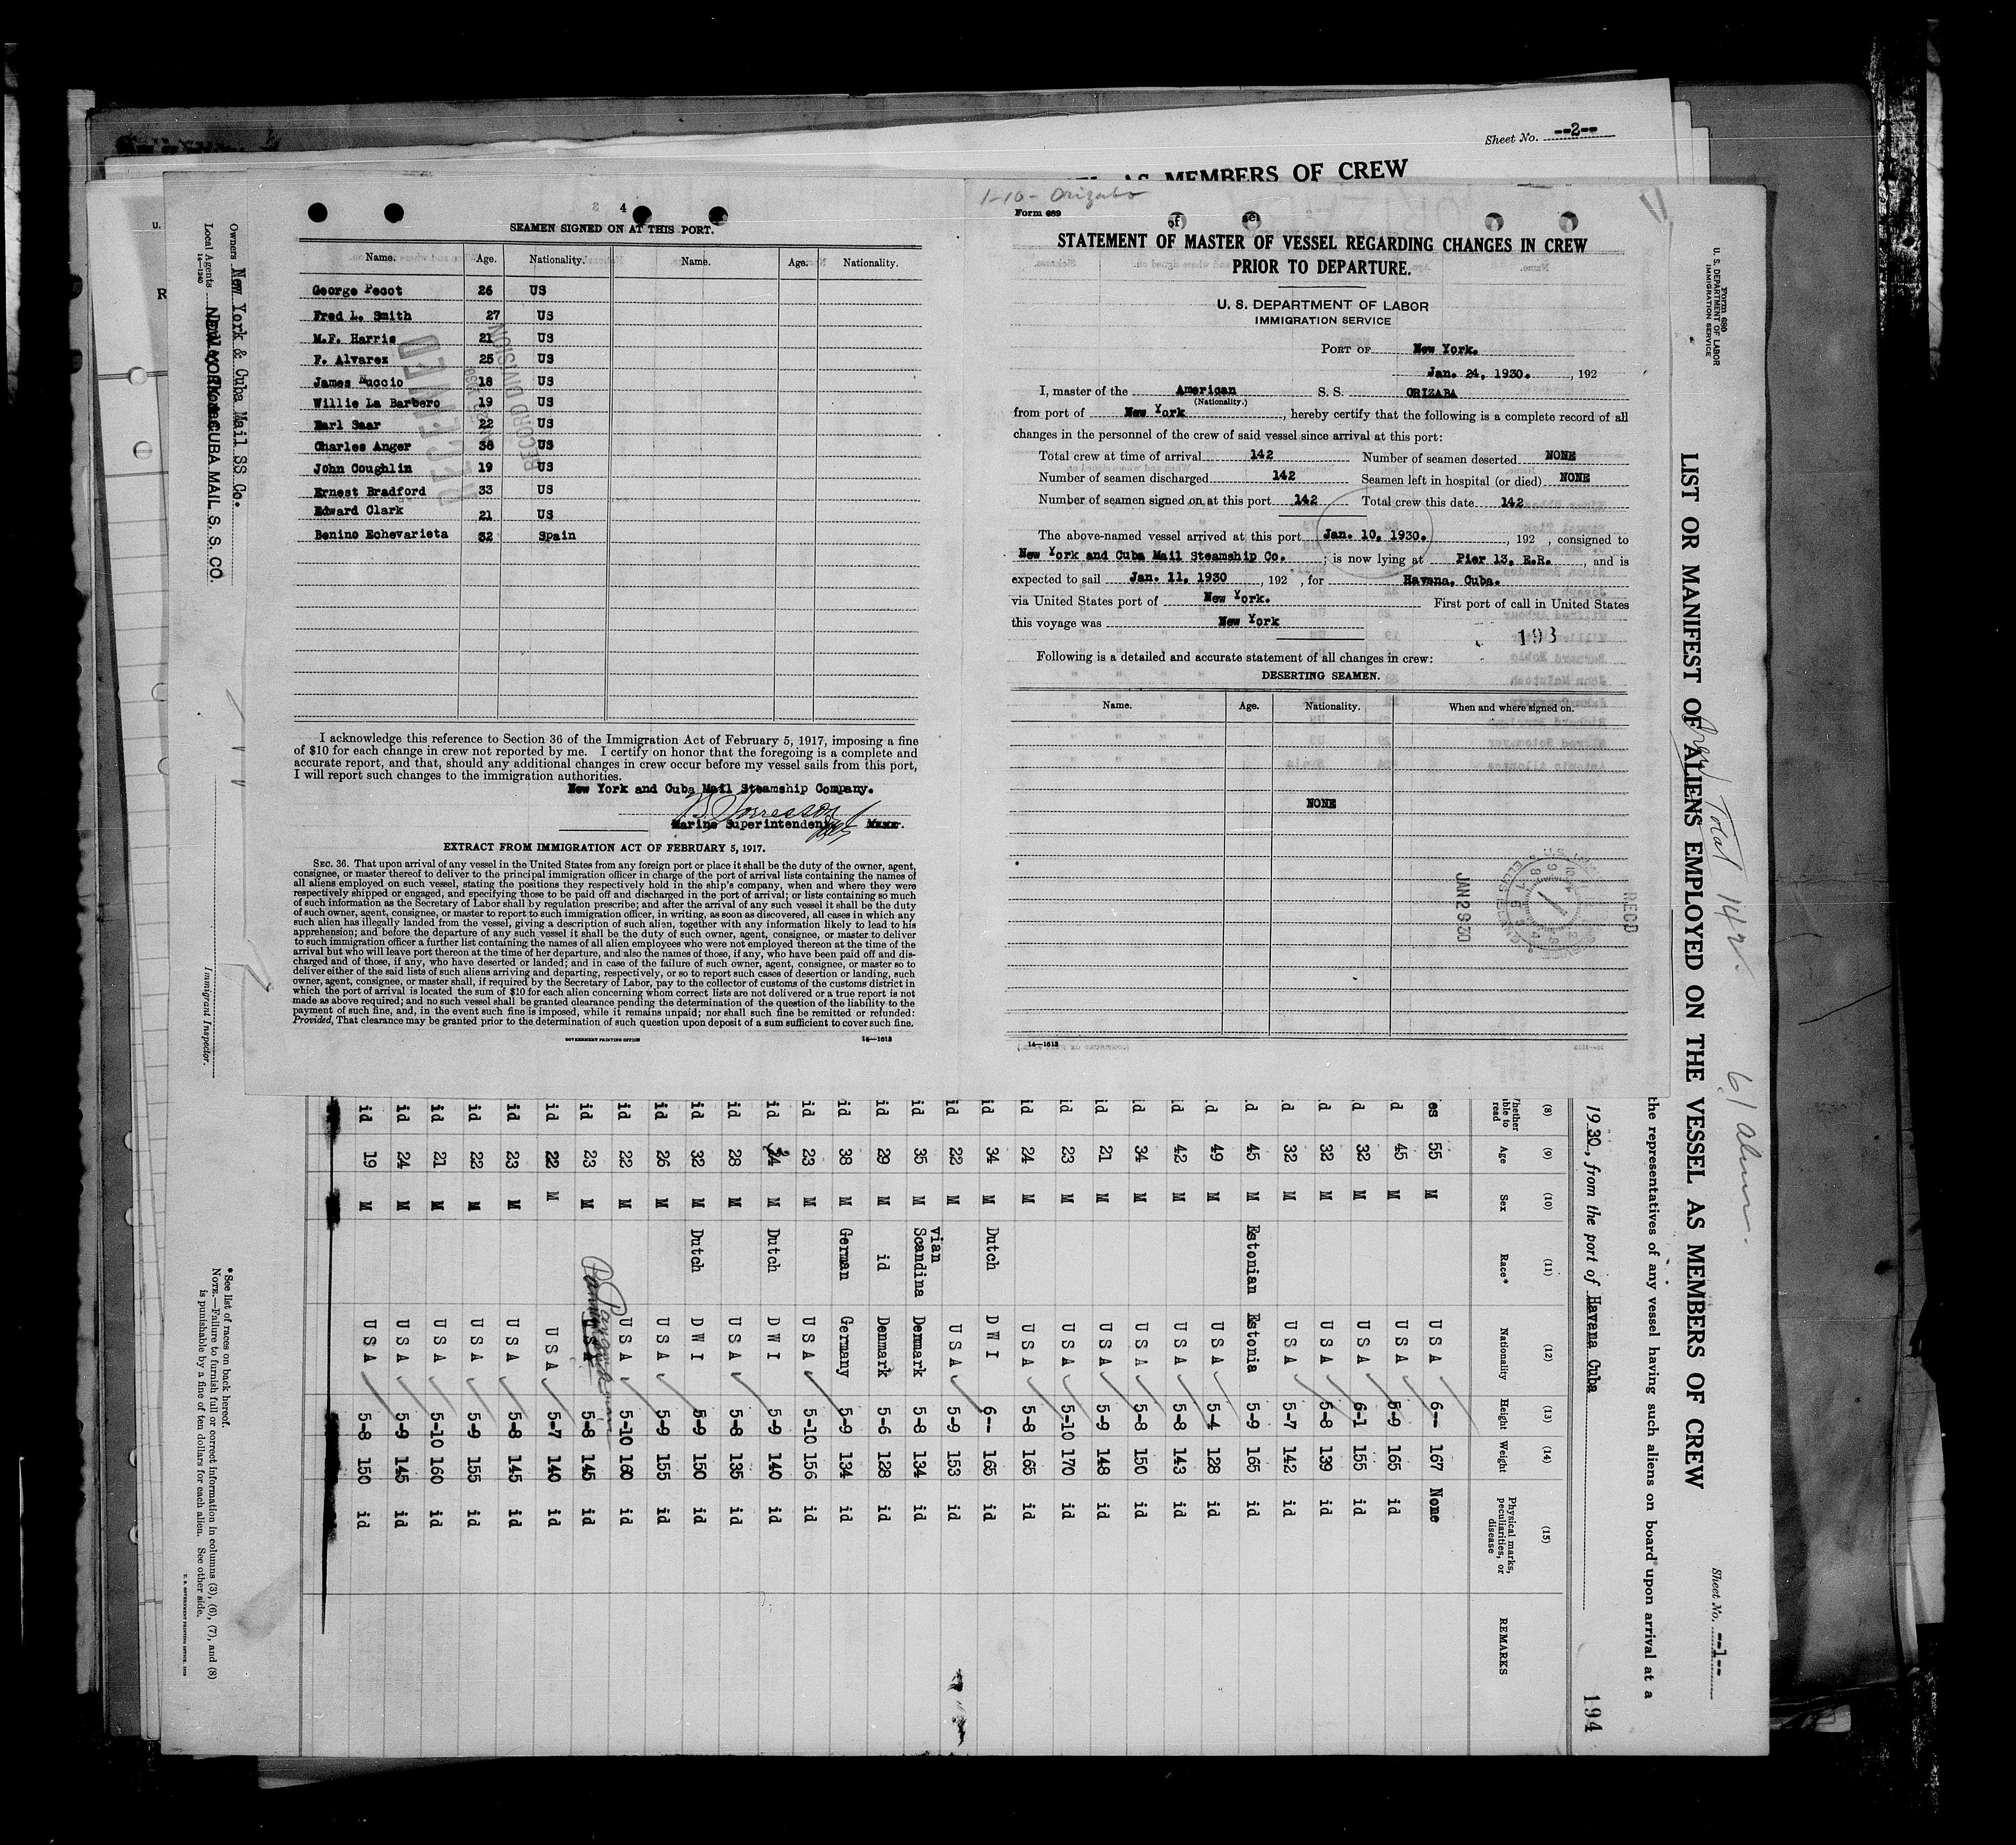 Sheet No. --2--
AS MEMBERS OF CREW
4
SEAMEN SIGNED ON AT THIS PORT.
Name. Age. Nationality. Name. Age. Nationality.
George Pecot 26 US
Fred L. Smith 27 US
M.F. Harris 21 US
F. Alvarez 25 US
James Nuccio 18 US
Willie La Barbero 19 US
Earl Saar 22 US
Charles Anger 38 US
John Coughlin 19 US
Ernest Bradford 33 US
Edward Clark 21 US
Benino Echevarieta 32 Spain
RECEIVED
RECORD DIVISION
I acknowledge this reference to Section 36 of the Immigration Act of February 5, 1917, imposing a fine
of $10 for each change in crew not reported by me. I certify on honor that the foregoing is a complete and
accurate report, and that, should any additional changes in crew occur before my vessel sails from this port,
I will report such changes to the immigration authorities.
New York and Cuba Mail Steamship Company.
Marine Superintendent
EXTRACT FROM IMMIGRATION ACT OF FEBRUARY 5, 1917.
SEC. 36. That upon arrival of any vessel in the United States from any foreign port or place it shall be the duty of the owner, agent,
consignee, or master thereof to deliver to the principal immigration officer in charge of the port of arrival lists containing the names of
all aliens employed on such vessel, stating the positions they respectively hold in the ship's company, when and where they were
respectively shipped or engaged, and specifying those to be paid off and discharged in the port of arrival; or lists containing so much
of such information as the Secretary of Labor shall by regulation prescribe; and after the arrival of any such vessel it shall be the duty
of such owner, agent, consignee, or master to report to such immigration officer, in writing, as soon as discovered, all cases in which any
such alien has illegally landed from the vessel, giving a description of such alien, together with any information likely to lead to his
apprehension; and before the departure of any such vessel it shall be the duty of such owner, agent, consignee, or master to deliver
to such immigration officer a further list containing the names of all alien employees who were not employed thereon at the time of the
arrival but who will leave port thereon at the time of her departure, and also the names of those, if any, who have been paid off and dis-
charged and of those, if any, who have deserted or landed; and in case of the failure of such owner, agent, consignee, or master so to
deliver either of the said lists of such aliens arriving and departing, respectively, or so to report such cases of desertion or landing, such
owner, agent, consignee, or master shall, if required by the Secretary of Labor, pay to the collector of customs of the customs district in
which the port of arrival is located the sum of $10 for each alien concerning whom correct lists are not delivered or a true report is not
made as above required; and no such vessel shall be granted clearance pending the determination of the question of the liability to the
payment of such fine, and, in the event such fine is imposed, while it remains unpaid; nor shall such fine be remitted or refunded:
Provided, That clearance may be granted prior to the determination of such question upon deposit of a sum sufficient to cover such fine.
GOVERNMENT PRINTING OFFICE 14—1613
1-10- Orizaba
Form 689
STATEMENT OF MASTER OF VESSEL REGARDING CHANGES IN CREW
PRIOR TO DEPARTURE.
U. S. DEPARTMENT OF LABOR
IMMIGRATION SERVICE
PORT OF New York.
Jan. 24, 1930. , 192
I, master of the American S. S. ORIZABA
(Nationality.)
from port of New York , hereby certify that the following is a complete record of all
changes in the personnel of the crew of said vessel since arrival at this port:
Total crew at time of arrival 142 Number of seamen deserted NONE
Number of seamen discharged 142 Seamen left in hospital (or died) NONE
Number of seamen signed on at this port 142 Total crew this date 142
The above-named vessel arrived at this port Jan. 10, 1930. , 192 , consigned to
New York and Cuba Mail Steamship Co. ; is now lying at Pier 13, E.R. , and is
expected to sail Jan. 11, 1930 , 192 , for Havana, Cuba.
via United States port of New York. First port of call in United States
this voyage was New York
193
Following is a detailed and accurate statement of all changes in crew:
DESERTING SEAMEN.
Name. Age. Nationality. When and where signed on.
NONE
JAN 29 30
REC'D
14—1613
Form 680
U. S. DEPARTMENT OF LABOR
IMMIGRATION SERVICE
LIST OR MANIFEST OF ALIENS EMPLOYED ON THE VESSEL AS MEMBERS OF CREW
Total 142.
Sheet No. --1--
the representatives of any vessel having such aliens on board upon arrival at a
1930, from the port of Havana Cuba
194
(8) (9) (10) (11) (12) (13) (14) (15)
Whether able to read Age Sex Race* Nationality Height Weight Physical marks, peculiarities, or disease REMARKS
es 55 M U S A 6-- 167 None
d 45 M U S A 5-9 165 id
d 32 M U S A 6-1 155 id
d 32 M U S A 5-8 139 id
d 32 M U S A 5-7 142 id
d 45 M Estonian Estonia 5-9 165 id
d 49 M U S A 5-4 128 id
id 42 M U S A 5-8 143 id
id 34 M U S A 5-8 150 id
id 21 M U S A 5-9 148 id
id 23 M U S A 5-10 170 id
id 24 M U S A 5-8 165 id
id 34 M Dutch D W I 6-- 165 id
id 22 M U S A 5-9 153 id
id 35 M Scandinavian Denmark 5-8 134 id
id 29 M id Denmark 5-6 128 id
id 38 M German Germany 5-9 134 id
id 23 M U S A 5-10 156 id
id 24 M Dutch D W I 5-9 140 id
id 28 M U S A 5-8 135 id
id 32 M Dutch D W I 5-9 150 id
id 26 M U S A 5-9 155 id
id 22 M U S A 5-10 160 id
id 23 M 5-8 145 id
id 22 M U S A 5-7 140 id
id 23 M U S A 5-8 145 id
id 22 M U S A 5-9 155 id
id 21 M U S A 5-10 160 id
id 24 M U S A 5-9 145 id
id 19 M U S A 5-8 150 id
Owners New York & Cuba Mail SS Co.
Local Agents NEW YORK & CUBA MAIL S. S. CO.
14—1240
Immigrant Inspector.
*See list of races on back hereof.
NOTE.—Failure to furnish full or correct information in columns (3), (6), (7), and (8)
is punishable by a fine of ten dollars for each alien. See other side.